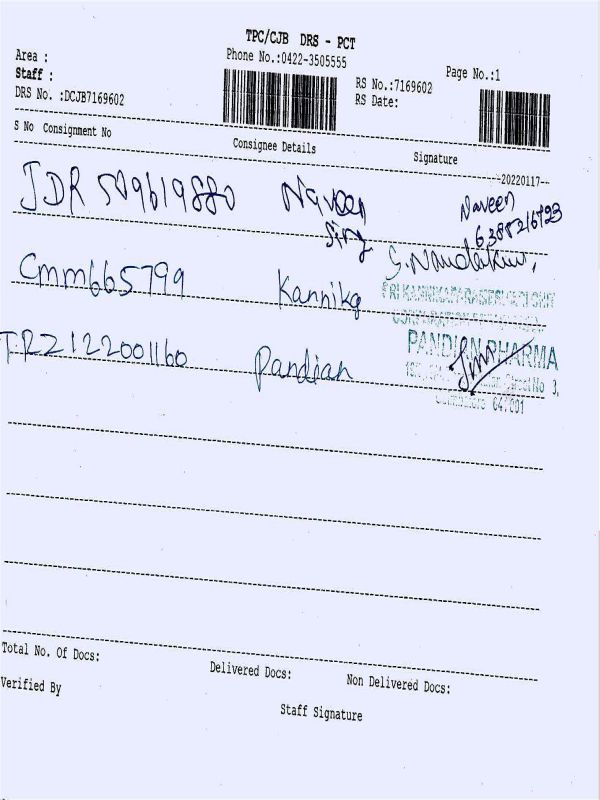 TPC/CJB DRS - PCT
Phone No.:0422-3505555
Area :
Staff :
DRS No. :DCJB7169602
RS No.:7169602
RS Date:
Page No.:1
S No Consignment No Consignee Details Signature
--20220117--
JDR 509619880 Naveen Naveen
CMM665799 Kannika S.Nandakum,
TRZ122001160 Pandian PANDIAN PHARMA
Total No. Of Docs: Delivered Docs: Non Delivered Docs:
Verified By Staff Signature